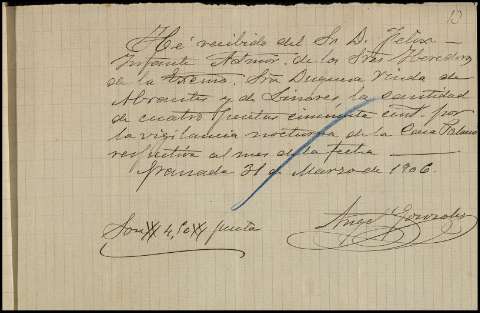 13
He recibido del Sr. D. Felipe
Infante Admor. de los Sres Herederos
de la Excma. Sra Duquesa Viuda de
Abrantes y de Linares la cantidad
de cuatro pesetas cincuenta cent. por
la vigilancia nocturna de la Casa Palacio
respectiva al mes de la fecha
Granada 31 de Marzo de 1906.
Angel Gonzalez
Son # 4,50 # pesetas